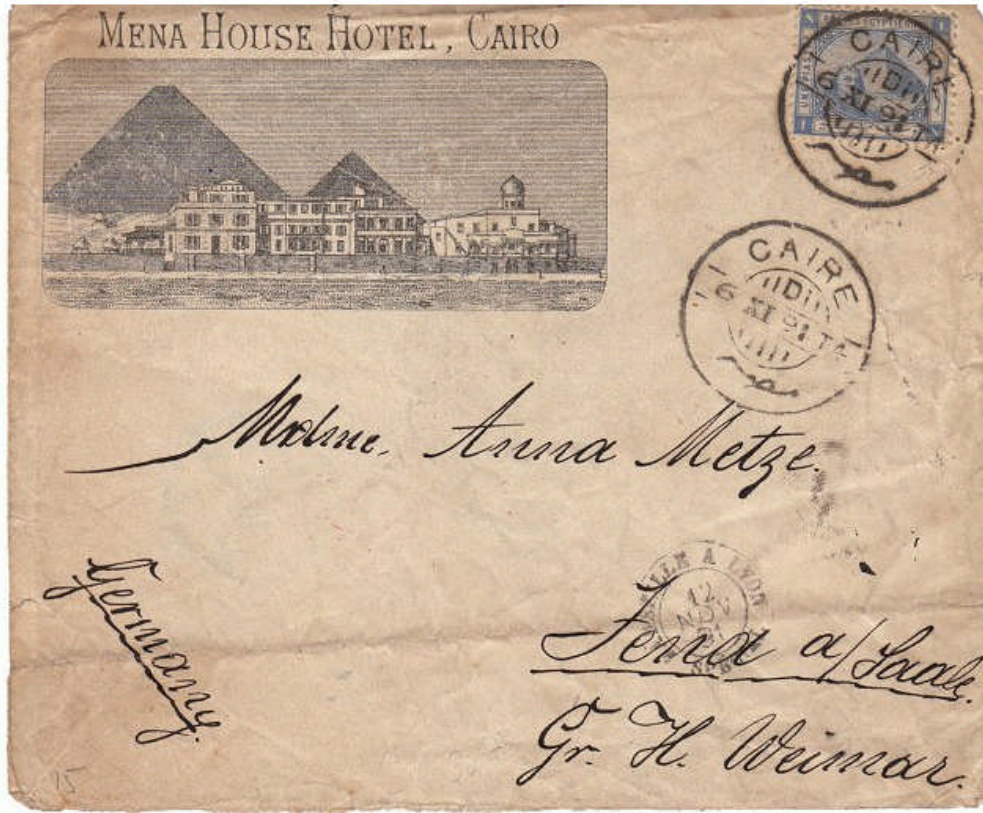 MENA HOUSE HOTEL, CAIRO
CAIRE
D
6 XI 91 T4
مصر
CAIRE
D
6 XI 91 T4
مصر
Mdme. Anna Metze.
Germany.
A LYON
12
NOV
91
Jena a/Saale.
Gr. H. Weimar.
15